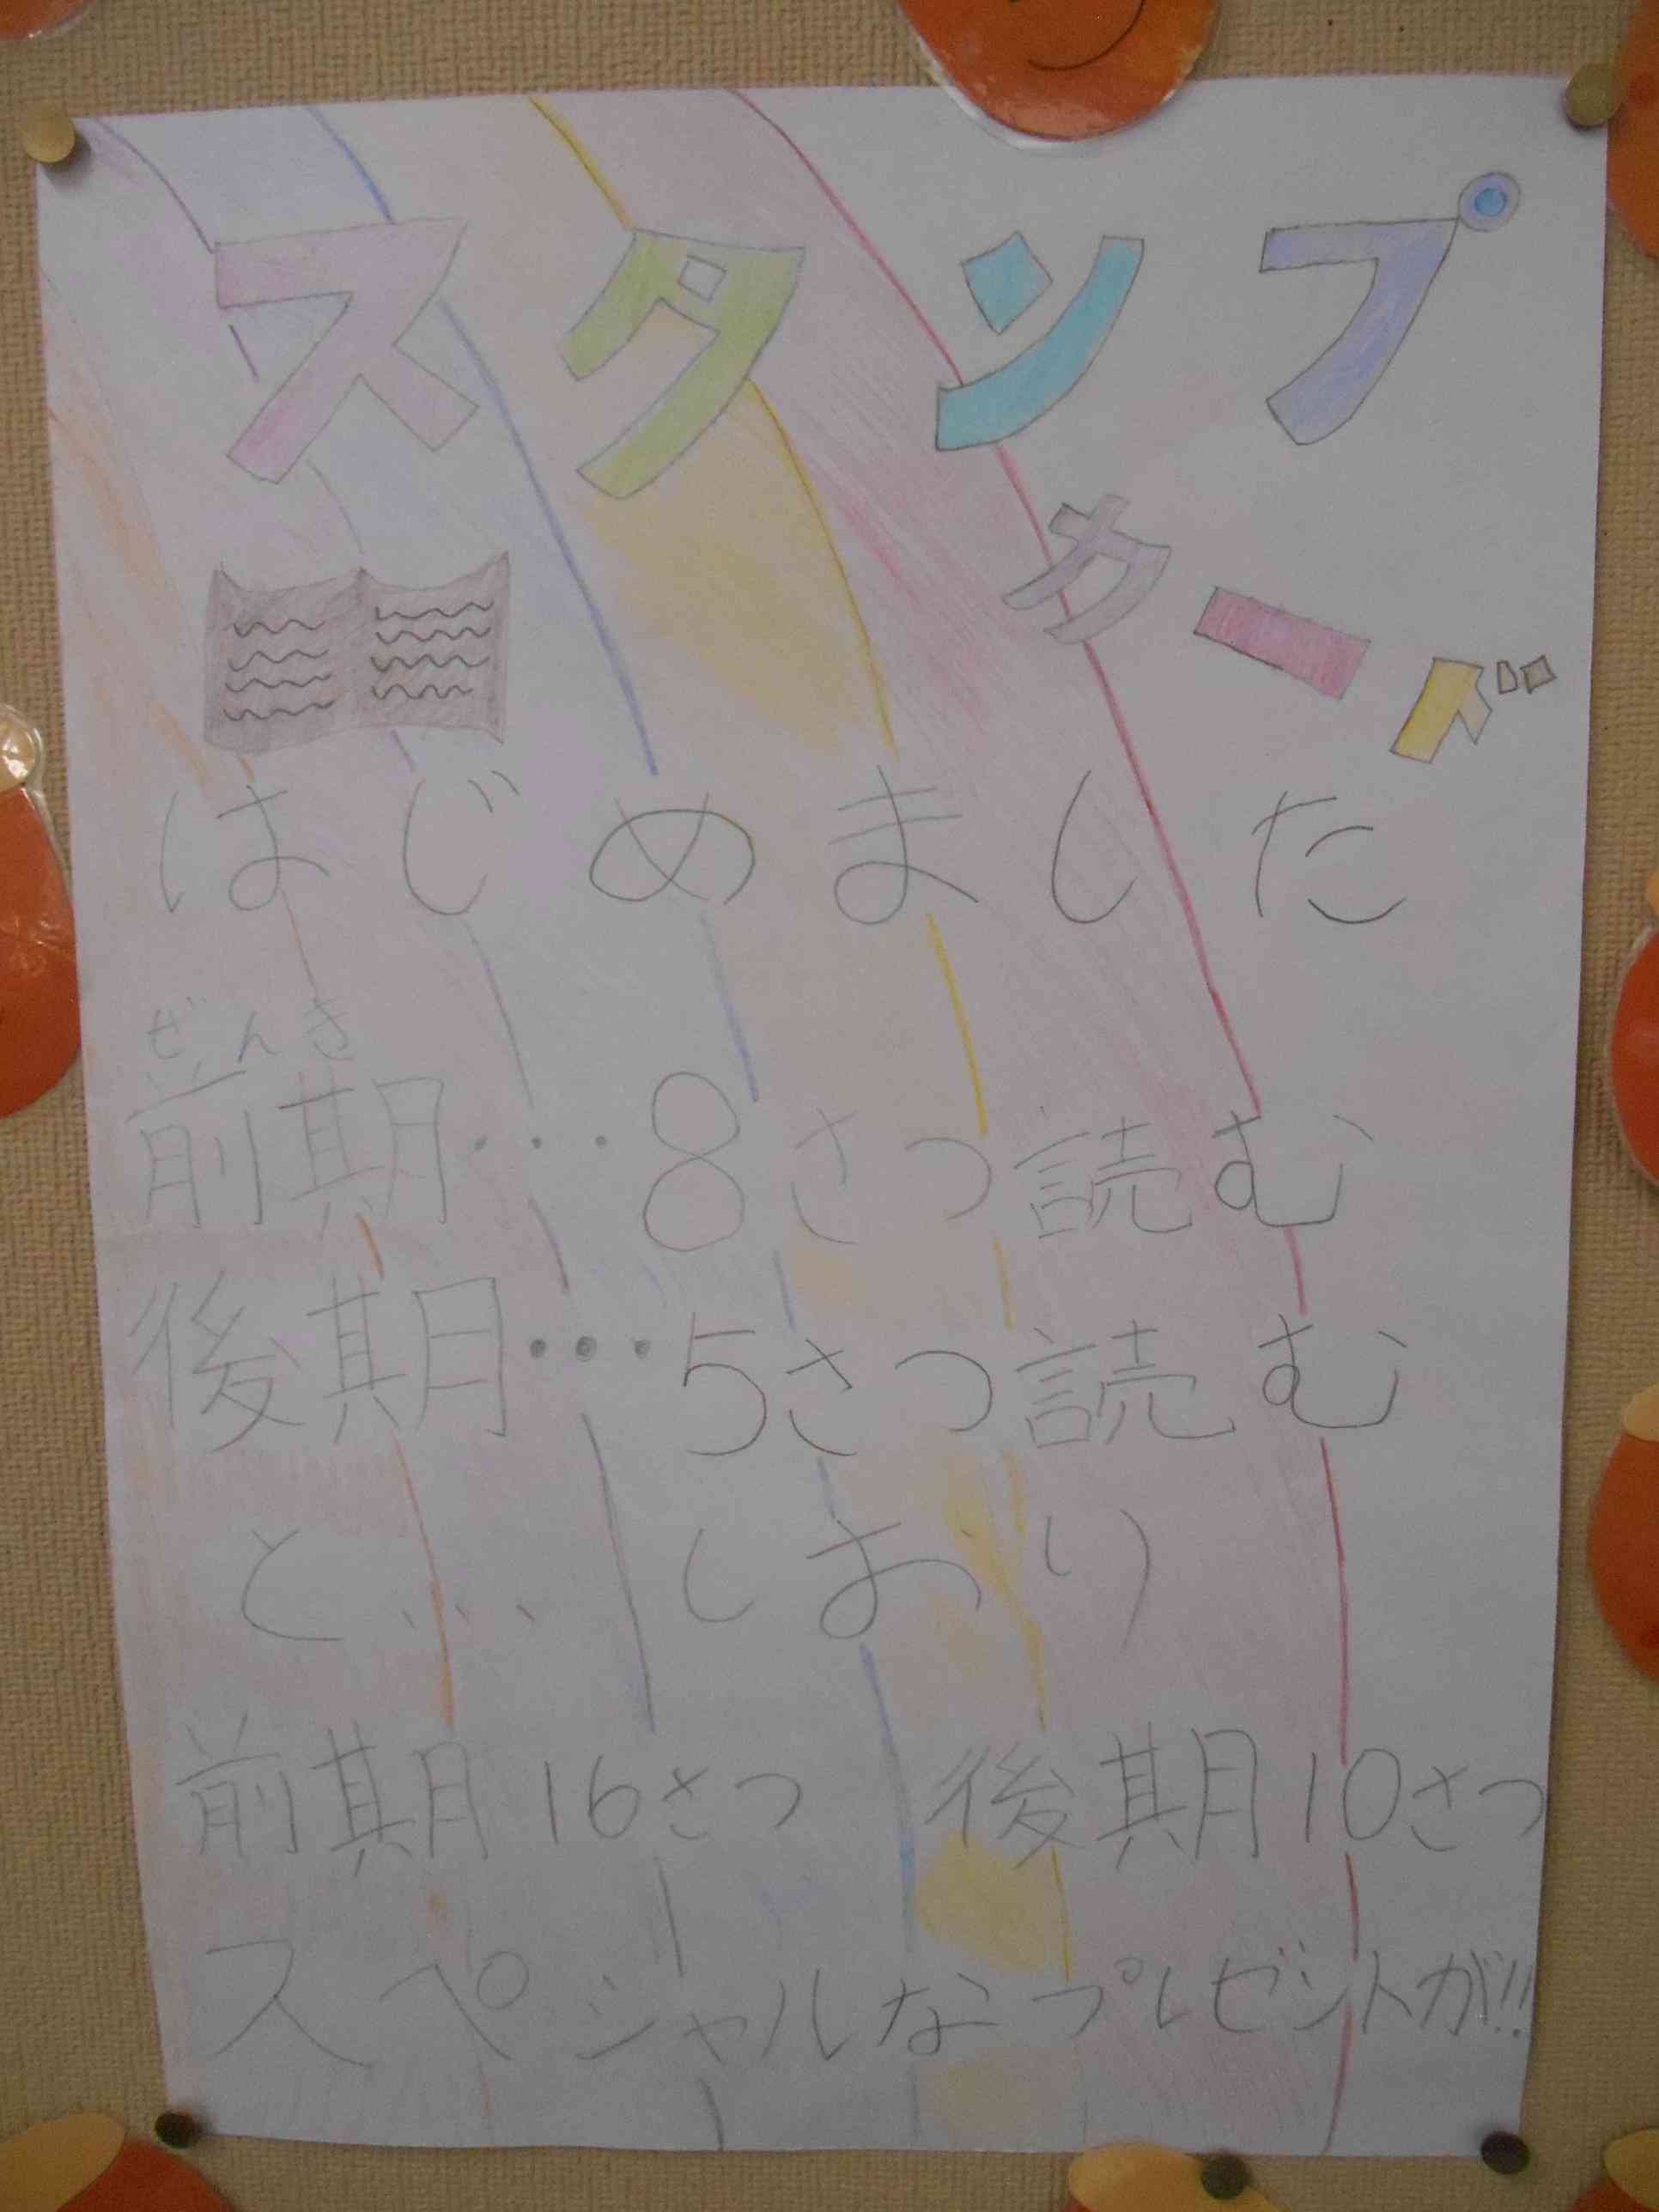 スタンプ
カード
はじめました
ぜんき
前期・・・8さつ読む
後期・・・5さつ読む
と・・・しおり
前期16さつ 後期10さつ
スペシャルなプレゼントが!!